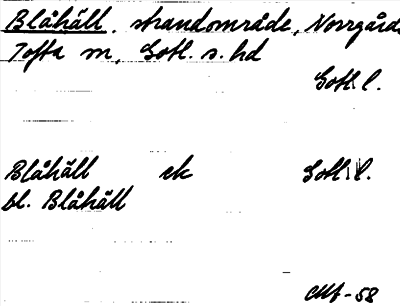 Blåhäll, strandområde, Norrgårde
Tofta sn, Gotl. s. hd
Gotl. l.
Blåhäll ek Gotl. l.
bl. Blåhäll
-58